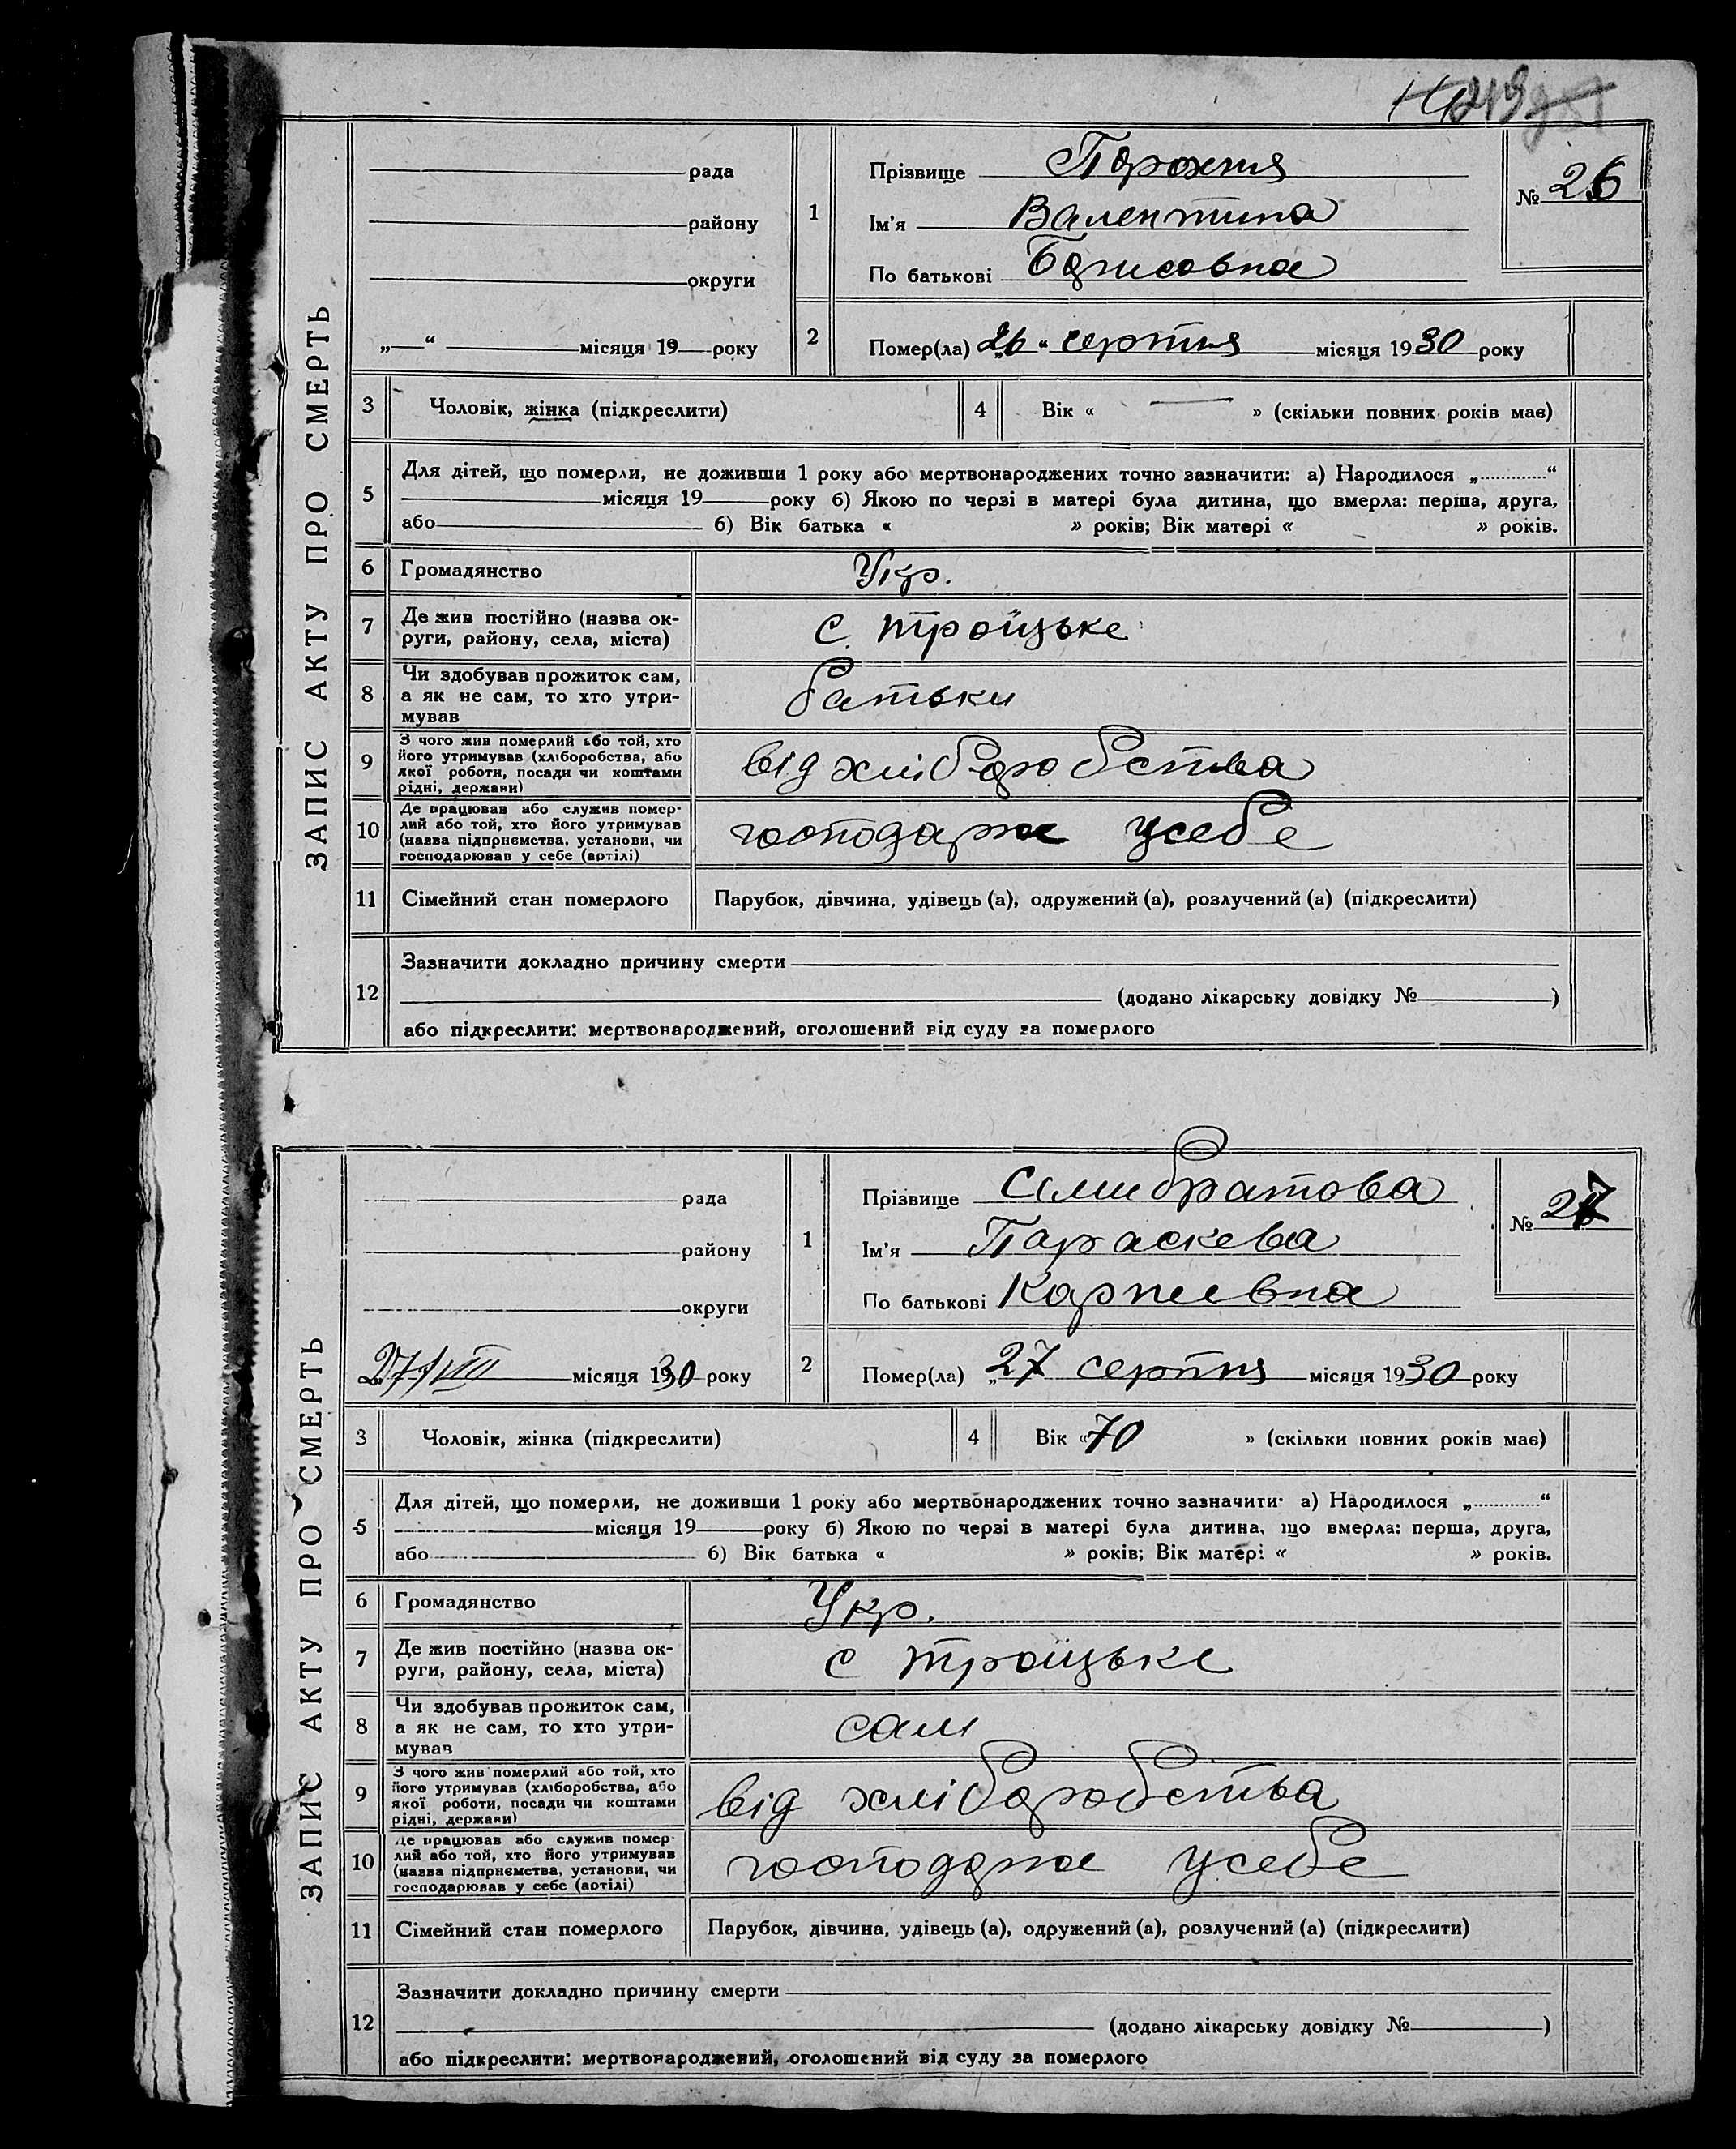 ЗАПИС АКТУ ПРО СМЕРТЬ
рада
району
округи
„ “ місяця 19 року
1
Прізвище Порохня
Ім'я Валентина
По батькові Борисовна
№ 26
2 Помер(ла) „26“ серпня місяця 1930 року
3 Чоловік, жінка (підкреслити)
4 Вік « — » (скільки повних років має)
5 Для дітей, що померли, не доживши 1 року або мертвонароджених точно зазначити: а) Народилося „............“
місяця 19 року б) Якою по черзі в матері була дитина, що вмерла: перша, друга,
або б) Вік батька « » років; Вік матері « » років.
6 Громадянство Укр.
7 Де жив постійно (назва ок-
руги, району, села, міста) с. троїцьке
8 Чи здобував прожиток сам,
а як не сам, то хто утри-
мував батьки
9 З чого жив померлий або той, хто
його утримував (хліборобства, або
якої роботи, посади чи коштами
рідні, держави) від хліборобства
10 Де працював або служив помер-
лий або той, хто його утримував
(назва підприємства, установи, чи
господарював у себе (артілі) господарює усебе
11 Сімейний стан померлого Парубок, дівчина, удівець (а), одружений (а), розлучений (а) (підкреслити)
12 Зазначити докладно причину смерти
(додано лікарську довідку № )
або підкреслити: мертвонароджений, оголошений від суду за померлого
ЗАПИС АКТУ ПРО СМЕРТЬ
рада
району
округи
27/VIII місяця 1930 року
1
Прізвище Симибратова
Ім'я Параскева
По батькові Корнеевна
№ 27
2 Помер(ла) „27 серпня місяця 1930 року
3 Чоловік, жінка (підкреслити)
4 Вік «70 » (скільки повних років має)
5 Для дітей, що померли, не доживши 1 року або мертвонароджених точно зазначити: а) Народилося „............“
місяця 19 року б) Якою по черзі в матері була дитина, що вмерла: перша, друга,
або б) Вік батька « » років; Вік матері « » років.
6 Громадянство Укр.
7 Де жив постійно (назва ок-
руги, району, села, міста) с троїцьке
8 Чи здобував прожиток сам,
а як не сам, то хто утри-
мував сам
9 З чого жив померлий або той, хто
його утримував (хліборобства, або
якої роботи, посади чи коштами
рідні, держави) від хліборобства
10 Де працював або служив помер-
лий або той, хто його утримував
(назва підприємства, установи, чи
господарював у себе (артілі) господарює усебе
11 Сімейний стан померлого Парубок, дівчина, удівець (а), одружений (а), розлучений (а) (підкреслити)
12 Зазначити докладно причину смерти
(додано лікарську довідку № )
або підкреслити: мертвонароджений, оголошений від суду за померлого